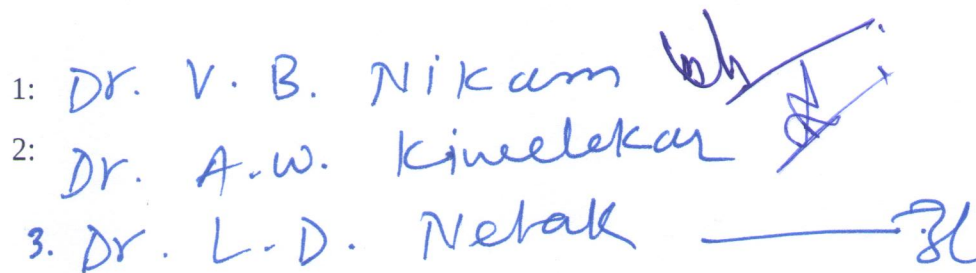 1: Dr. V. B. Nikam
2: Dr. A.W. Kiwelekar
3. Dr. L.D. Netak